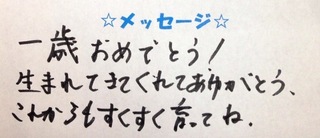 ☆メッセージ☆
一歳おめでとう!
生まれてきてくれてありがとう、
これからもすくすく育ってね。